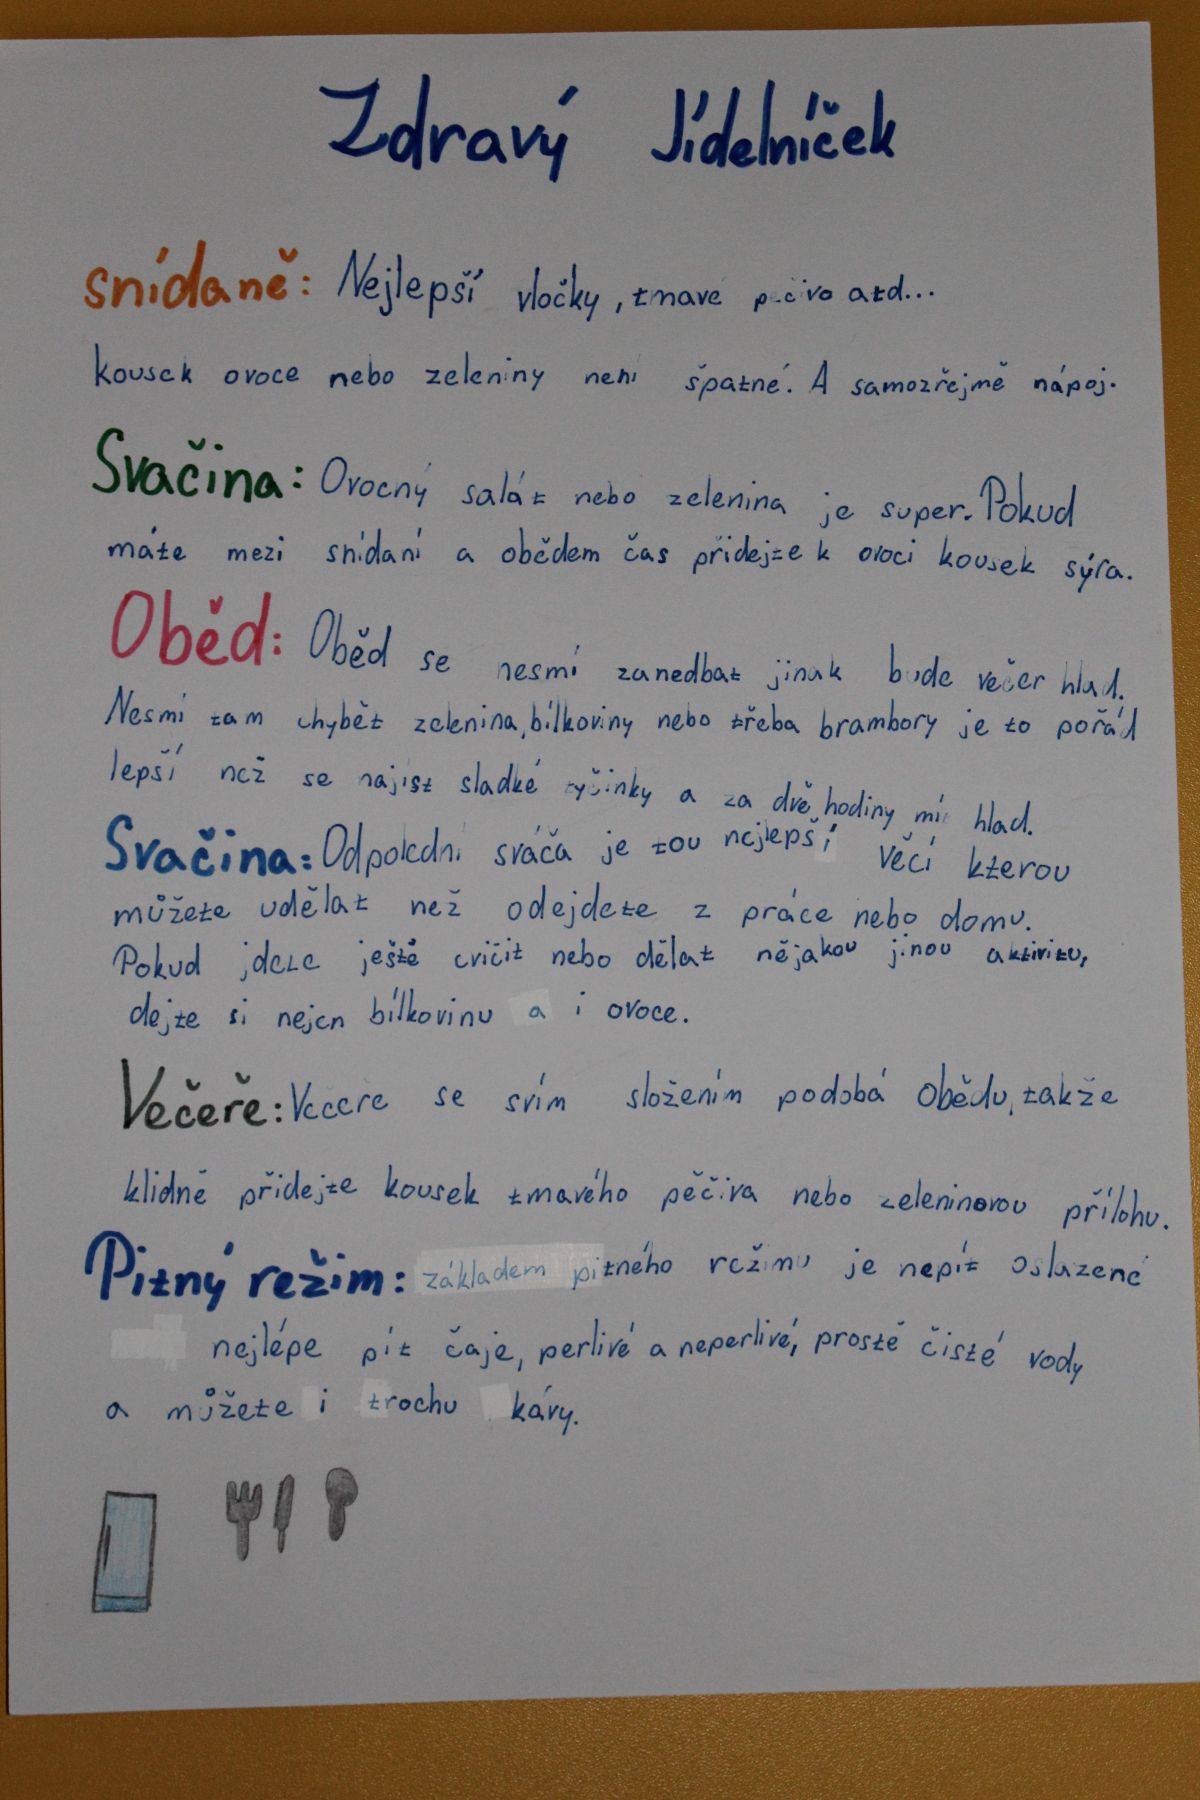 Zdravý Jídelníček
snídaně: Nejlepší vločky, tmavé pečivo atd...
kousek ovoce nebo zeleniny není špatné. A samozřejmě nápoj.
Svačina: Ovocný salát nebo zelenina je super. Pokud
máte mezi snídaní a obědem čas přidejte k ovoci kousek sýra.
Oběd: Oběd se nesmí zanedbat jinak bude večer hlad.
Nesmí tam chybět zelenina, bílkoviny nebo třeba brambory je to pořád
lepší než se najíst sladké tyčinky a za dvě hodiny mít hlad.
Svačina: Odpolední sváča je tou nejlepší věcí kterou
můžete udělat než odejdete z práce nebo domu.
Pokud jdete ještě cvičit nebo dělat nějakou jinou aktivitu,
dejte si nejen bílkovinu a i ovoce.
Večeře: Večeře se svím složením podobá obědu, takže
klidně přidejte kousek tmavého péčiva nebo zeleninovou přílohu.
Pitný režim: základem pitného režimu je nepít oslazené
nejlépe pít čaje, perlivé a neperlivé, prostě čisté vody
a můžete i trochu kávy.